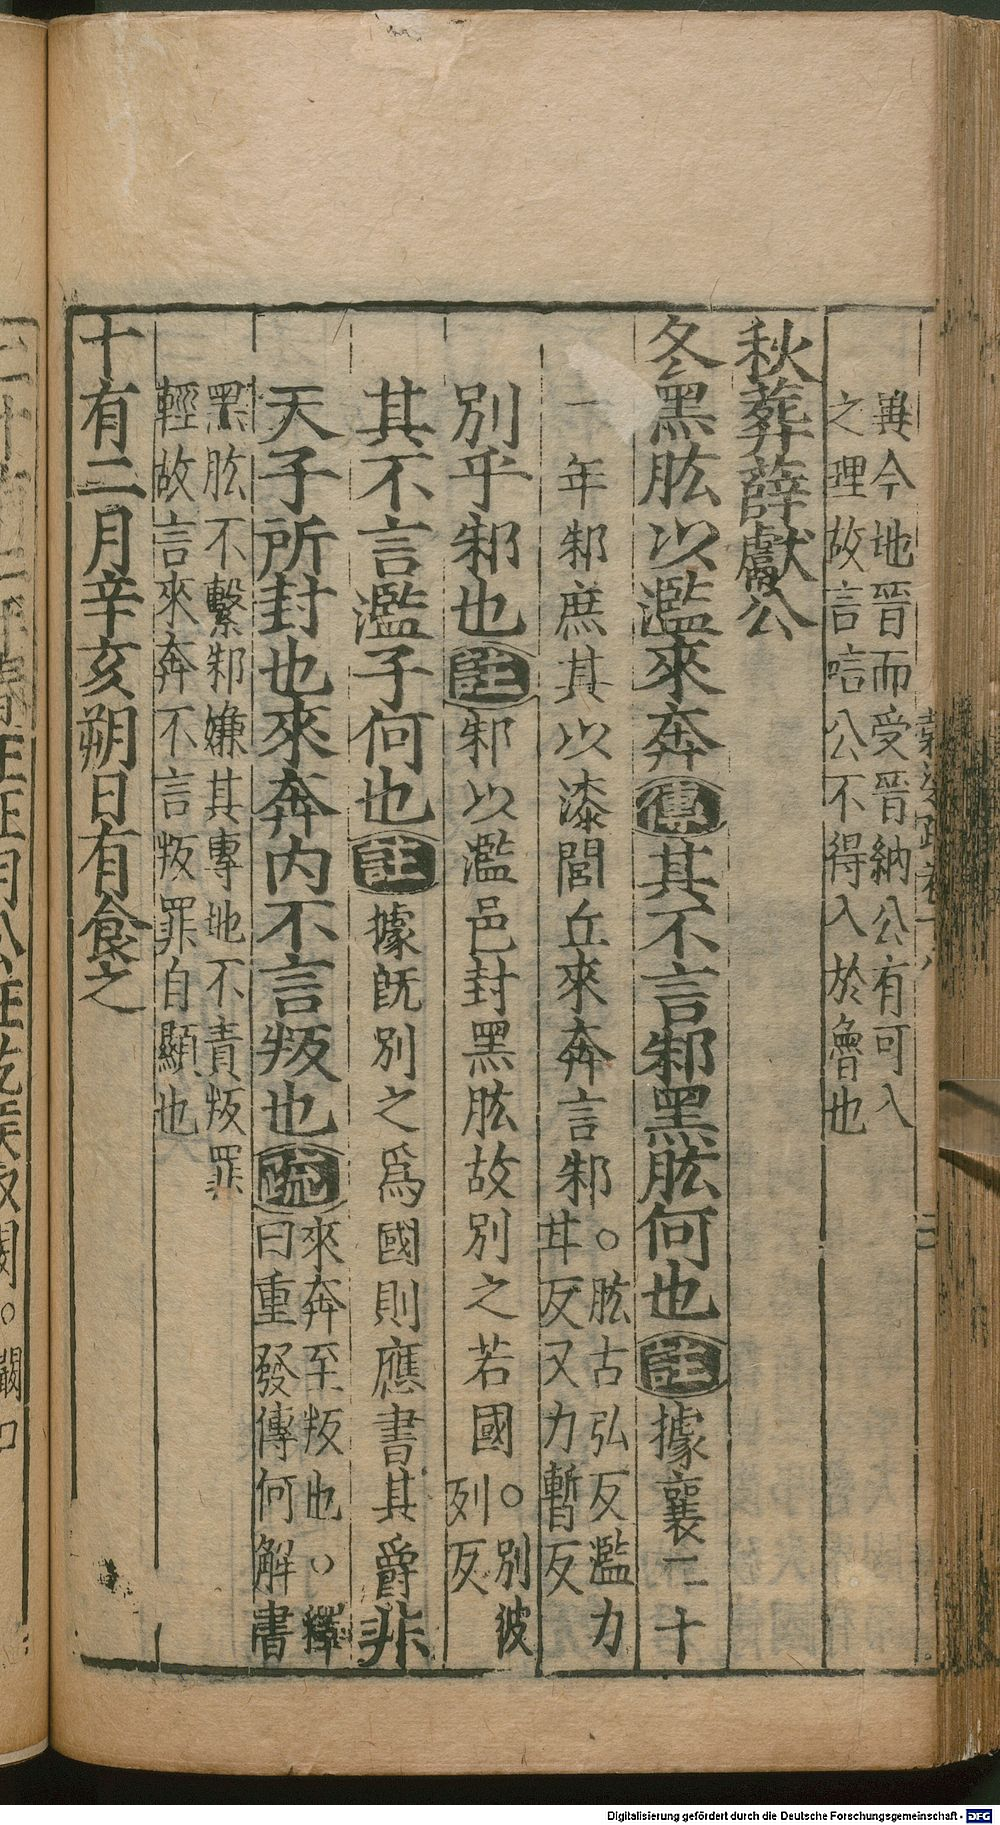 異今地晉而受晉納公有可入
之理故言唁公不得入於魯也
秋葬薛獻公
冬黑肱以濫來奔傳其不言邾黑肱何也註據襄二十
一年邾庶其以漆閭丘來奔言邾○肱古弘反濫力
甘反又力暫反
別乎邾也註邾以濫邑封黑肱故別之若國○別彼
列反
其不言濫子何也註據既別之爲國則應書其爵非
天子所封也來奔內不言叛也疏來奔至叛也○釋
曰重發傳何解書
黑肱不繫邾嫌其專地不責叛罪
輕故言來奔不言叛罪自顯也
十有二月辛亥朔日有食之
Digitalisierung gefördert durch die Deutsche Forschungsgemeinschaft - DFG